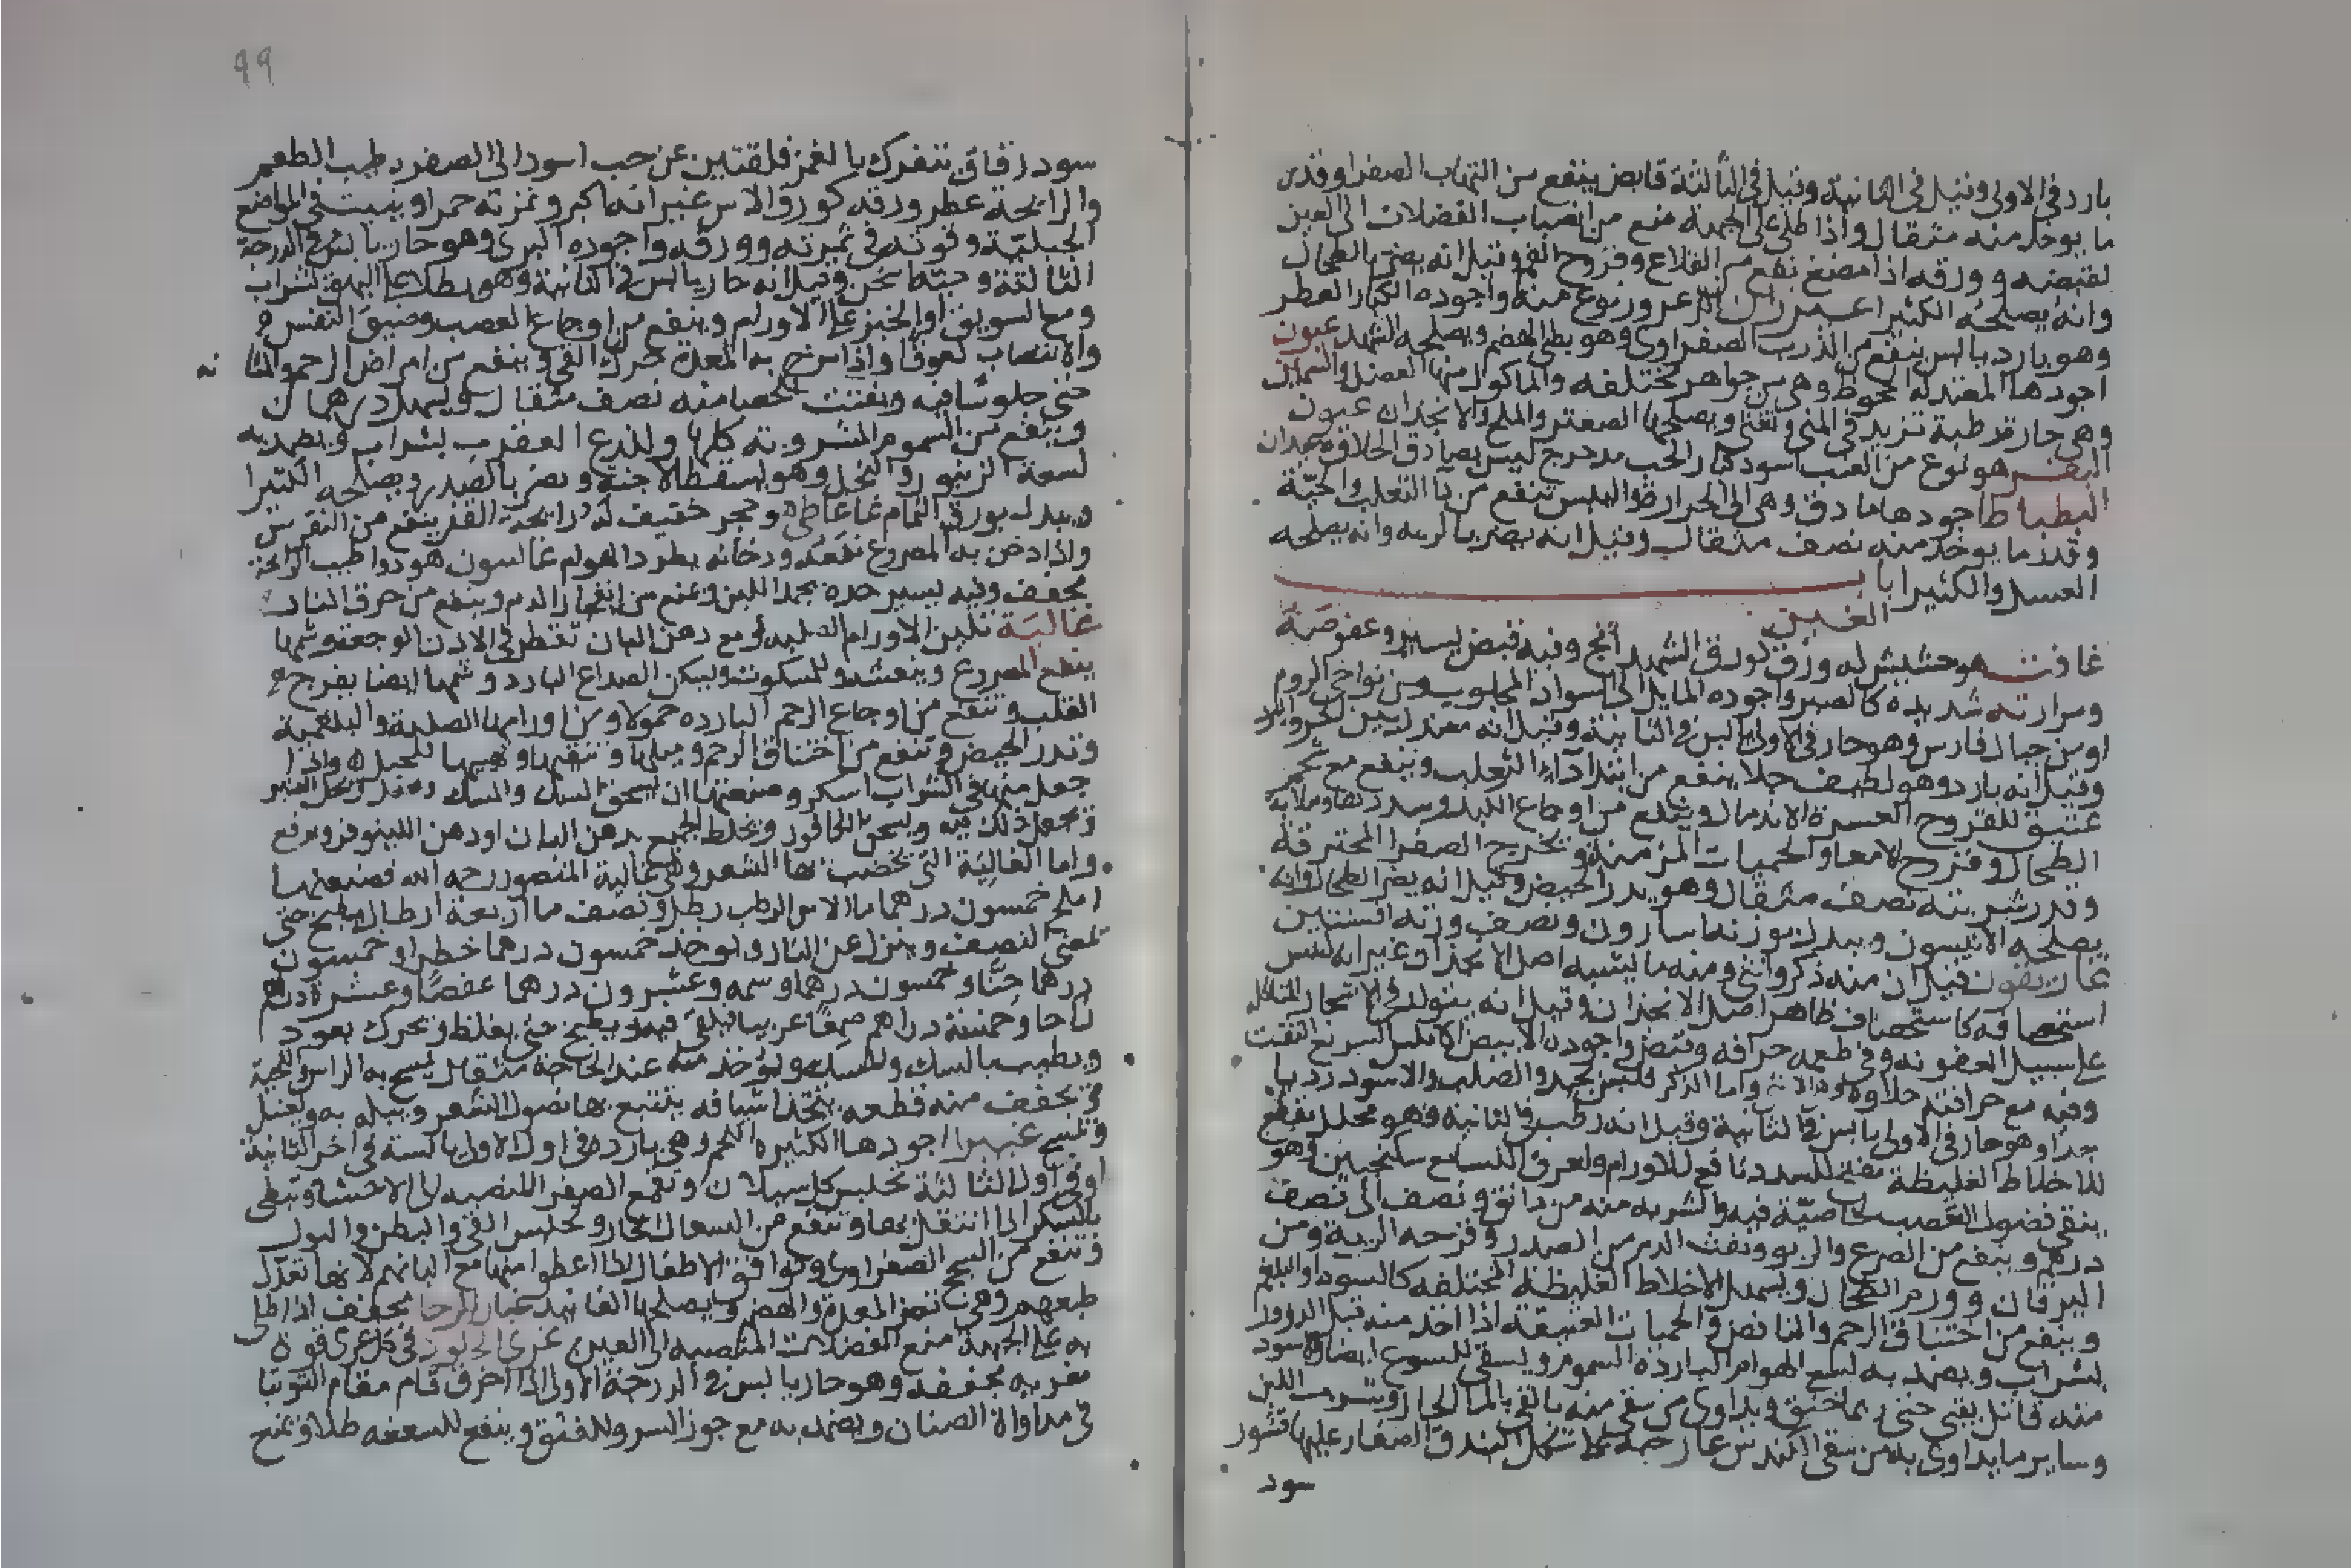 بارد في الاولى وقيل في الثانية وقيل في الثالثة قابض ينفع من التهاب الصفرا وقدر
ما يوخذ منه مثقال واذا طلي على الجبهة منع من انصباب الفضلات الى العين
لقبضه وورقه اذا مضغ نفع من القلاع وقروح الفم وقيل انه يضر بالطحال
وانه يصلحه الكثيرا الزعرور نوع منه واجوده الكبار العطر
وهو بارد يابس ينفع من الذرب الصفراوي وهو بطي الهضم ويصلحه الشهد عيون
اجودها المعتدلة وهي من جواهر مختلفه والماكول منها العضل
وهي حارة رطبة تزيد في المني وتغثي ويصلحها الصعتر والملح والانجدان عيون
البقر هو نوع من العنب اسود كبار الحب مدحرج ليس بصادق الحلاوة عيدان
البطباط اجودها ما دق وهي الى الحرارة واليبس تنفع من دا الثعلب والحيّة
وقدر ما يوخذ منه نصف مثقال وقيل انه يضر بالريه وانه يصلحه
العسل والكثيرا باب
الغين
غافت هو حشيش له ورق كورق الشهدانج وفيه قبض يسير وعفوصة
ومرارته شديده كالصبر واجوده المايل الى السواد المجلوب من نواحي الروم
او من جبال فارس وهو حار في الاولى يابس في الثانية وقيل انه معتدل بين الحر والبرد
وقيل انه بارد وهو لطيف جلا ينفع من ابتدا دآء الثعلب وينفع مع شحم
عتيق للقروح العسرة الاندمال وينفع من اوجاع الكبد وسددها وصلابة
الطحال وقروح الامعا والحميات المزمنة ويخرج الصفرا المحترقة
وقدر شربته نصف مثقال وهو يدر الحيض وقيل انه يضر الطحال وانه
يصلحه الانيسون ويبدل بوزنه اسارون ونصف وزنه افسنتين
غاريقون قيل ان منه ذكر وانثى ومنه ما يشبه اصل الانجدان غير انه ليس
استحصافه كاستحصاف ظاهر اصل الانجدان وقيل انه يتولد في الاشجار المتاكله
على سبيل العفونه وفي طعمه حرافه وقبض واجوده الابيض الاملس السريع التفتت
وفيه مع حرافته حلاوة وهو الانثى واما الذكر فليس بجيد والصلب والاسود رديا
جدا وهو حار في الاولى يابس في الثانية وقيل انه رطب في الثانية وهو محلل مقطع
للاخلاط الغليظة مفتح للسدد نافع للاورام ولعرق النسا مع سكنجبين وهو
ينقي فضول العصب لخاصّيّة فيه والشربه منه من دانق ونصف الى نصف
درهم وينفع من الصرع والربو ونفث الدم من الصدر وقرحه الرية ومن
اليرقان وورم الطحال ويسهل الاخلاط الغليظة المختلفه كالسودا والبلغم
وينفع من اختناق الرحم والنافض والحميات العتيقة اذا اخذ منه قبل الدور
بشراب ويضمد به لسع الهوام البارده السموم ويسقى للسوع ايضا والاسود
منه قاتل يقيي حتى ربما خنق ويداوى من سقي منه بالقي بالما الحار وشرب اللبن
وساير ما يداوى به من سقي الكندس غار حبه على شكل البندق الصغار عليها قشور
سود
٩٩
سود رقاق تنفرك بالغمز فلقتين عن حب اسود الى الصفره طيب الطعم
والرايحة عطر ورقه كورق الاس غير انه اكبر وثمرته حمرا وينبت في المواضع
الجبليّة وقوته في ثمرته وورقه واجوده البري وهو حار يابس في الدرجة
الثالثة وحبّه اسخن وقيل انه حار يابس في الثانية وهو يطلا على البهق بشراب
ومع السويق او الخبز على الاورام وينفع من اوجاع العصب وضيق النفس و
والانتصاب لعوقا واذا مرخ به المعدة حرك القي وينفع من امراض الرحم والمثا نه
حتى جلوسا فيه ويفتت الحصا منه نصف مثقال ويسهل درهمان
وينفع من السموم المشروبة كلها وللدغ العقرب بشراب ويضمد به
لسعة الزنبور والنحل وهو يسقط الاجنة ويضر بالصدر ويصلحه الكثيرا
ويبدل بورق النمام غاغاطي هو حجر خفيف له رايحة القفر ينفع من النقرس
واذا دخن به المصروع نفعه ودخانه يطرد الهوام غالسون هو دوا طيب الرايحة
مجفف وفيه يسير حدة يجمد اللبن ويمنع من انفجار الدم وينفع من حرق النار
غالية تلين الاورام الصلبه مع دهن البان تقطر في الاذن الوجعة وشمها
ينفع المصروع وينعشه وللسكوت ويسكن الصداع البارد وشمها ايضا يفرح و
القلب وتنفع من اوجاع الرحم البارده حمولا ومن اورامها الصلبة والبلغمية
وتدر الحيض وتنفع من اختناق الرحم وميلها وتنقيها وتهيها للحبل واذا
جعل منها في الشراب اسكر وصنعتها ان يسحق السك والمسك ويحل العنبر
ثم يجعل ذلك فيه ويسحق الكافور ويخلط الجميع بدهن البان او دهن اللينوفر ويرفع
واما الغالية التي يخضب بها الشعر وهي غالية المنصور رحمه الله فصنعتها
املج خمسون درهما ما الاس الرطب رطل ونصف ما اربعة ارطال يطبخ حتى
يفنى النصف وينزل عن النار ويوخذ خمسون درهما خطرا وخمسون
درهما حنّا وخمسون درهما وسمه وعشرون درهما عفصًا وعشر دراهم
زاجا وخمسة دراهم صمغًا عربيا فيلقى فيه ويطبخ حتى يغلظ ويحرك بعود
ويطيب بالسك والمسك ويوخذ منه عند الحاجة مثقال يمسح به الراس واللحية
ثم يجفف منه قطعه يتخذ اشيافه يتتبع بها نصول الشعر ويبله به ويغسل
غبيرا اجودها الكثيره اللحم وهي بارده في اول الاولى يابسة في اخر الثانية
او في اول الثالثة تحبس كل سيلان وتقمع الصفرا المنصبه الى الاحشا وتبطي
بالسكر اذا انتقل بها وتنفع من السعال الحار وتحبس القي والبطن والبول
وتنفع من السحج الصفراوي وتوافق الاطفال اذا اعطوا منها مع البانهم لانها تعدل
طبعهم وهي تضر المعدة والهضم ويصلحها الفانيد غبار الرحا مجفف اذا طلي
به على الجبهة منع الفضلات المنصبه الى العين غرى الجلود في كل غرى قوة
مغريه مجففه وهو حار يابس في الدرجة الاولى اذا احرق قام مقام التوتيا
في مداواة الصنان ويضمد به مع جوز السرو للفتق وينفع للسعفه طلا ويمنع